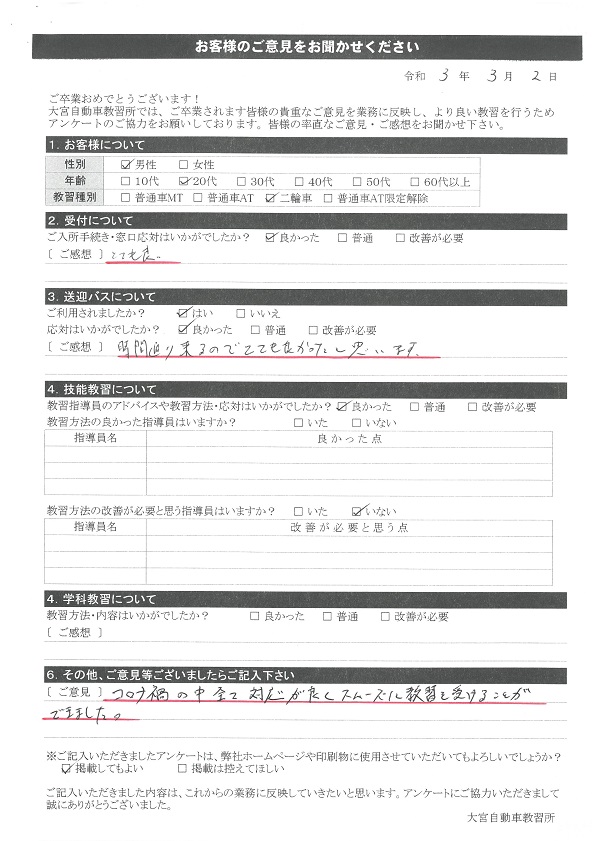 お客様のご意見をお聞かせください
令和 3 年 3 月 2 日
ご卒業おめでとうございます！
大宮自動車教習所では、ご卒業されます皆様の貴重なご意見を業務に反映し、より良い教習を行うため
アンケートのご協力をお願いしております。皆様の率直なご意見・ご感想をお聞かせ下さい。
1. お客様について
性別 ☑男性 □女性
年齢 □10代 ☑20代 □30代 □40代 □50代 □60代以上
教習種別 □普通車MT □普通車AT ☑二輪車 □普通車AT限定解除
2. 受付について
ご入所手続き・窓口応対はいかがでしたか？ ☑良かった □普通 □改善が必要
〔 ご感想 〕 とても良い
3. 送迎バスについて
ご利用されましたか？ ☑はい □いいえ
応対はいかがでしたか？ ☑良かった □普通 □改善が必要
〔 ご感想 〕 時間通り来るのでとても良かったと思います。
4. 技能教習について
教習指導員のアドバイスや教習方法・応対はいかがでしたか？ ☑良かった □普通 □改善が必要
教習方法の良かった指導員はいますか？ □いた □いない
指導員名 良かった点
教習方法の改善が必要と思う指導員はいますか？ □いた ☑いない
指導員名 改善が必要と思う点
4. 学科教習について
教習方法・内容はいかがでしたか？ □良かった □普通 □改善が必要
〔 ご感想 〕
6. その他、ご意見等ございましたらご記入下さい
〔 ご意見 〕 コロナ禍の中全て対応が良くスムーズに教習を受けることが
できました。
※ご記入いただきましたアンケートは、弊社ホームページや印刷物に使用させていただいてもよろしいでしょうか？
☑掲載してもよい □掲載は控えてほしい
ご記入いただきました内容は、これからの業務に反映していきたいと思います。アンケートにご協力いただきまして
誠にありがとうございました。
大宮自動車教習所